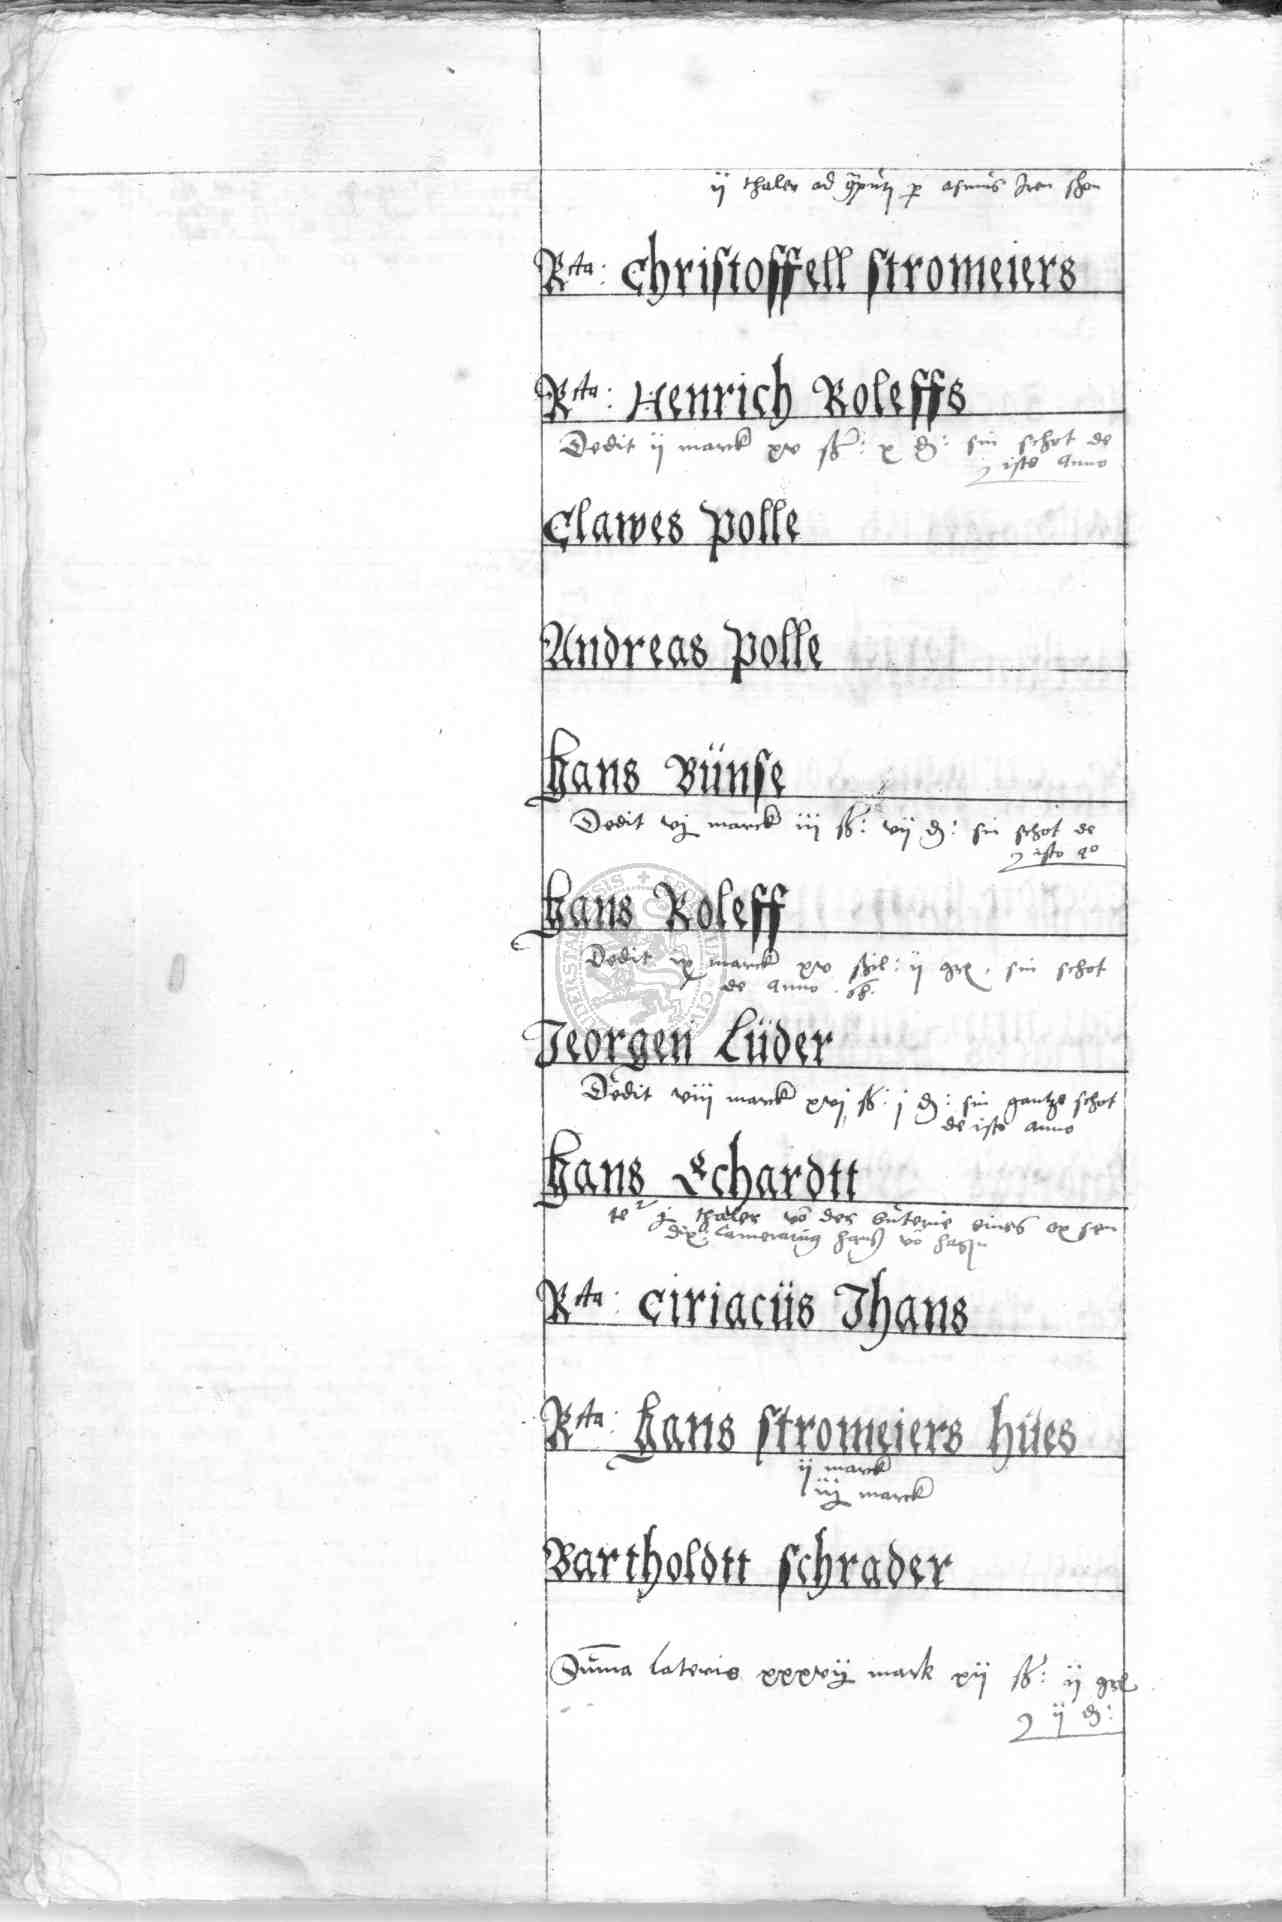 ij thaler ad
Rcta: Christoffell stromeiers
Rcta: Henrich Roleffs
Dedit ij marck xv ß: x ₰: sin schot de
isto anno
Clawes Polle
Andreas Polle
Hans Bünse
Dedit vj marck iij ß: vij ₰: sin schot de
isto ao
Hans Roleff
Dedit ix marck xv ßil: ij gr. sin schot
de anno . 68.
Jeorgen Lüder
Dedit viij marck xvj ß: j ₰: sin gantze schot
de isto anno
Hans Echardtt
thaler vō der eines
Camerarius hans vō
Rcta: Ciriacüs Jhans
Rcta: Hans stromeiers hües
ij marck
iij marck
Bartholdtt schrader
Suma lateris xxxvij mark xij ß: ij gr
ij ₰: